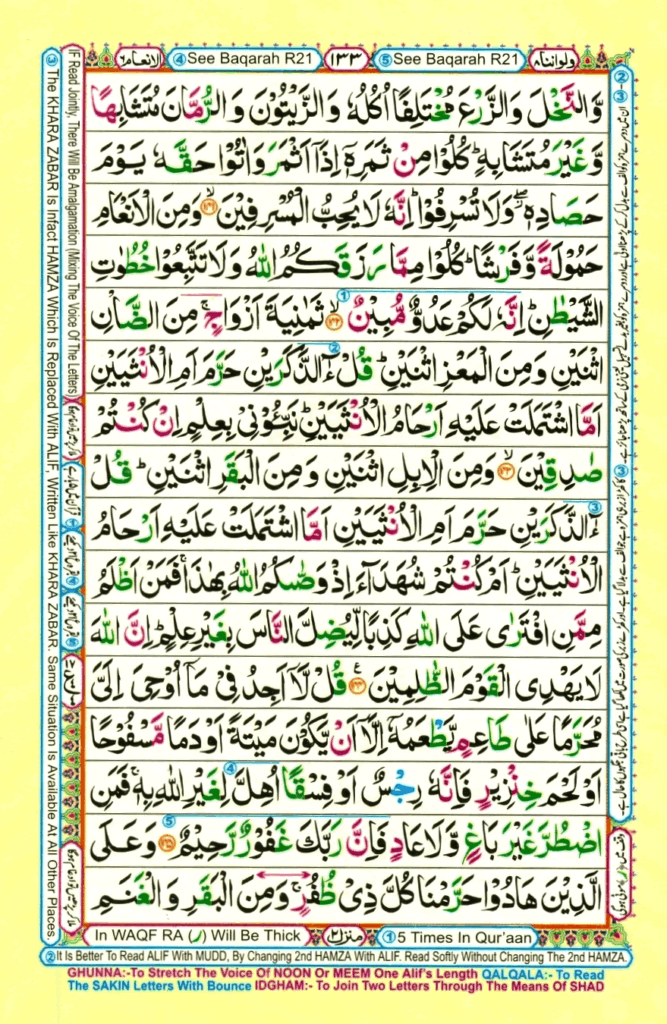 ولواننا ٨
⑤ See Baqarah R21
١٣٣
④ See Baqarah R21
الانعام ٦
وَّالنَّخْلَ وَالزَّرْعَ مُخْتَلِفًا اُكُلُهٗ وَالزَّيْتُوْنَ وَالرُّمَّانَ مُتَشَابِهًا
وَّغَيْرَ مُتَشَابِهٍ ؕ كُلُوْا مِنْ ثَمَرِهٖۤ اِذَاۤ اَثْمَرَ وَاٰتُوْا حَقَّهٗ يَوْمَ
حَصَادِهٖ ۖ وَلَا تُسْرِفُوْا ؕ اِنَّهٗ لَا يُحِبُّ الْمُسْرِفِيْنَ ۙ﴿۱۴۱﴾ وَمِنَ الْاَنْعَامِ
حَمُوْلَةً وَّفَرْشًا ؕ كُلُوْا مِمَّا رَزَقَكُمُ اللّٰهُ وَلَا تَتَّبِعُوْا خُطُوٰتِ
الشَّيْطٰنِ ؕ اِنَّهٗ لَكُمْ عَدُوٌّ مُّبِيْنٌ ۙ﴿۱۴۲﴾ ثَمٰنِيَةَ اَزْوَاجٍ ۚ مِنَ الضَّاْنِ
اثْنَيْنِ وَمِنَ الْمَعْزِ اثْنَيْنِ ؕ قُلْ ءٰٓالذَّكَرَيْنِ حَرَّمَ اَمِ الْاُنْثَيَيْنِ
اَمَّا اشْتَمَلَتْ عَلَيْهِ اَرْحَامُ الْاُنْثَيَيْنِ ؕ نَبِّـُٔوْنِيْ بِعِلْمٍ اِنْ كُنْتُمْ
صٰدِقِيْنَ ۙ﴿۱۴۳﴾ وَمِنَ الْاِبِلِ اثْنَيْنِ وَمِنَ الْبَقَرِ اثْنَيْنِ ؕ قُلْ
ءٰٓالذَّكَرَيْنِ حَرَّمَ اَمِ الْاُنْثَيَيْنِ اَمَّا اشْتَمَلَتْ عَلَيْهِ اَرْحَامُ
الْاُنْثَيَيْنِ ؕ اَمْ كُنْتُمْ شُهَدَآءَ اِذْ وَصّٰىكُمُ اللّٰهُ بِهٰذَا ۚ فَمَنْ اَظْلَمُ
مِمَّنِ افْتَرٰى عَلَى اللّٰهِ كَذِبًا لِّيُضِلَّ النَّاسَ بِغَيْرِ عِلْمٍ ؕ اِنَّ اللّٰهَ
لَا يَهْدِى الْقَوْمَ الظّٰلِمِيْنَ ﴿۱۴۴﴾ قُلْ لَّاۤ اَجِدُ فِيْ مَاۤ اُوْحِيَ اِلَيَّ
مُحَرَّمًا عَلٰى طَاعِمٍ يَّطْعَمُهٗۤ اِلَّاۤ اَنْ يَّكُوْنَ مَيْتَةً اَوْ دَمًا مَّسْفُوْحًا
اَوْ لَحْمَ خِنْزِيْرٍ فَاِنَّهٗ رِجْسٌ اَوْ فِسْقًا اُهِلَّ لِغَيْرِ اللّٰهِ بِهٖ ۚ فَمَنِ
اضْطُرَّ غَيْرَ بَاغٍ وَّلَا عَادٍ فَاِنَّ رَبَّكَ غَفُوْرٌ رَّحِيْمٌ ﴿۱۴۵﴾ وَعَلَى
الَّذِيْنَ هَادُوْا حَرَّمْنَا كُلَّ ذِيْ ظُفُرٍ ۚ وَمِنَ الْبَقَرِ وَالْغَنَمِ
① 5 Times In Qur'aan
منزل ٢
In WAQF RA (ر) Will Be Thick
② It Is Better To Read ALIF With MUDD, By Changing 2nd HAMZA With ALIF. Read Softly Without Changing The 2nd HAMZA.
GHUNNA:-To Stretch The Voice Of NOON Or MEEM One Alif's Length QALQALA:- To Read
The SAKIN Letters With Bounce IDGHAM:- To Join Two Letters Through The Means Of SHAD
IF Read Jointly, There Will Be Amalgamation (Mixing The Voice Of The Letters)
③ The KHARA ZABAR Is Infact HAMZA Which Is Replaced With ALIF, Written Like KHARA ZABAR. Same Situation Is Available At All Other Places.